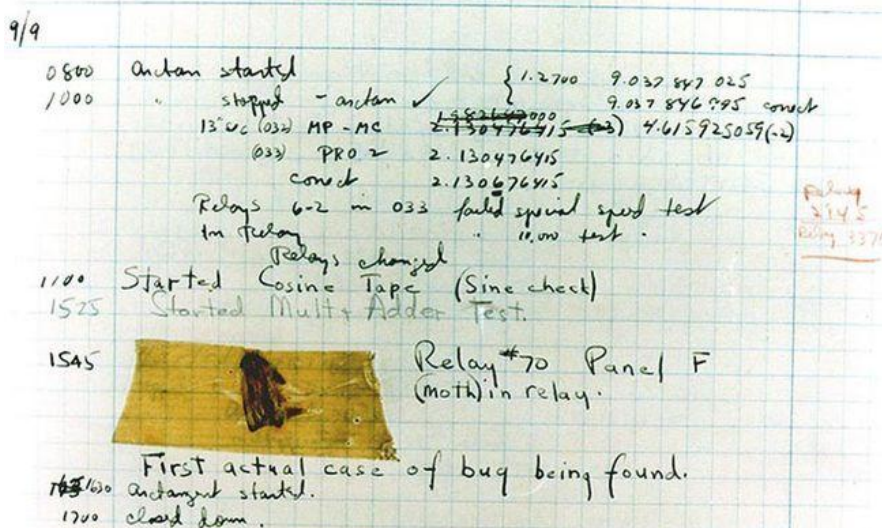 9/9
0800 Antan started
1000 " stopped - antan ✓
{ 1.2700 9.037 847 025
9.037 846 995 correct
13"uc (032) MP - MC 1.982647000 2.130476415 (-3) 4.615925059(-2)
(033) PRO 2 2.130476415
correct 2.130676415
Relays 6-2 in 033 failed special speed test
In Relay " 10,000 test .
Relays changed
Relay
2145
Relay 337
1100 Started Cosine Tape (Sine check)
1525 Started Mult + Adder Test.
1545 Relay #70 Panel F
(moth) in relay.
First actual case of bug being found.
1630 Antangent started.
1700 closed down.